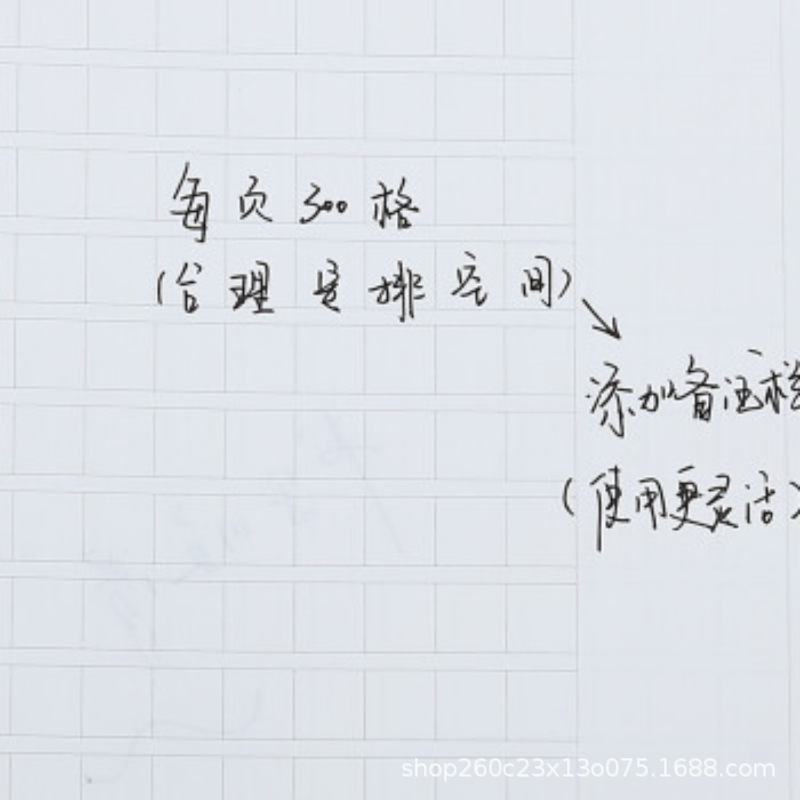 每页300格
(合理是排空间)
添加备注
(使用更灵活)
shop260c23x13o075.1688.com